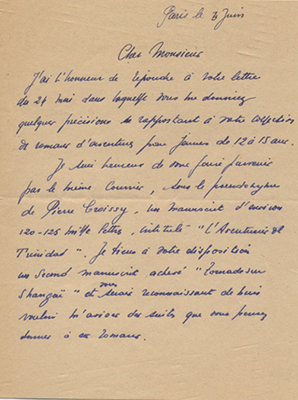 Paris le 3 Juin
Cher Monsieur
J'ai l'honneur de répondre à votre lettre
du 24 mai dans laquelle vous me donniez
quelques précisions se rapportant à votre collection
de romans d'aventures pour Jeunes de 12 à 15 ans.
Je suis heureux de vous faire parvenir
par le même Courrier, sous le pseudonyme
de Pierre Croissy, un manuscrit d'environ
120-125 mille lettres, intitulé "L'Aventurier de
Trinidad". Je tiens à votre disposition
un Second manuscrit achevé "Tornade sur
Shangaï" et serais reconnaissant de bien
vouloir m'aviser des suites que vous pensez
donner à ces romans.